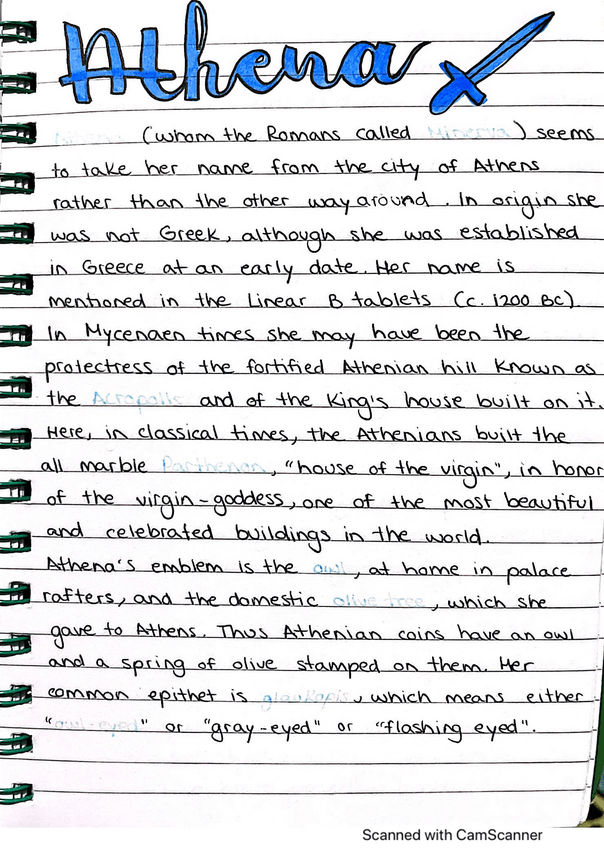 Athena
Athena (whom the Romans called Minerva) seems
to take her name from the city of Athens
rather than the other way around. In origin she
was not Greek, although she was established
in Greece at an early date. Her name is
mentioned in the Linear B tablets (c. 1200 BC).
In Mycenaen times she may have been the
protectress of the fortified Athenian hill known as
the Acropolis and of the King's house built on it.
Here, in classical times, the Athenians built the
all marble Parthenon, "house of the virgin", in honor
of the virgin-goddess, one of the most beautiful
and celebrated buildings in the world.
Athena's emblem is the owl, at home in palace
rafters, and the domestic olive tree, which she
gave to Athens. Thus Athenian coins have an owl
and a spring of olive stamped on them. Her
common epithet is glaukopis, which means either
"owl-eyed" or "gray-eyed" or "flashing eyed".
Scanned with CamScanner